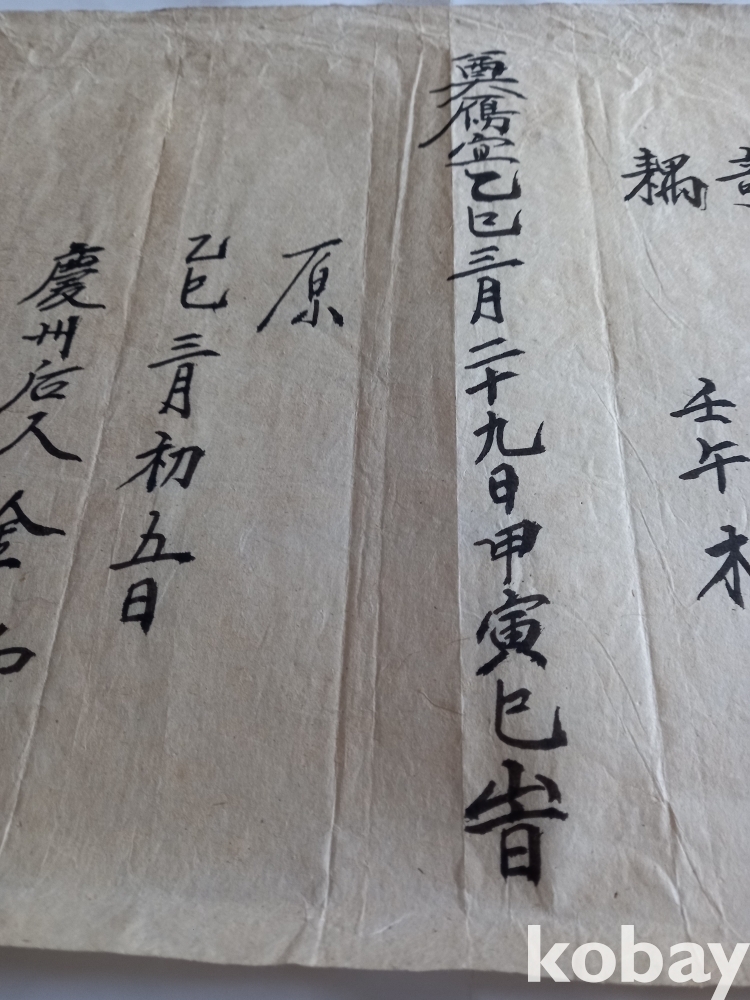 耦 壬午木
奠鴈宜乙巳三月二十九日甲寅巳旹
原
乙巳三月初五日
慶州后人金
kobay